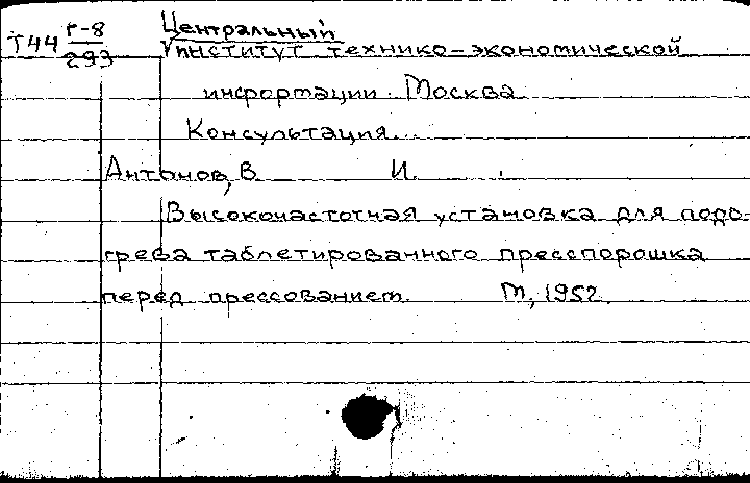 Т44 Г-8 Центральный
293 институт технико-экономической
информации. Москва
Консультация...
Антонов, В. И.
Высокочастотная установка для подо-
грева таблетированного пресспорошка
перед прессованием. М, 1952.